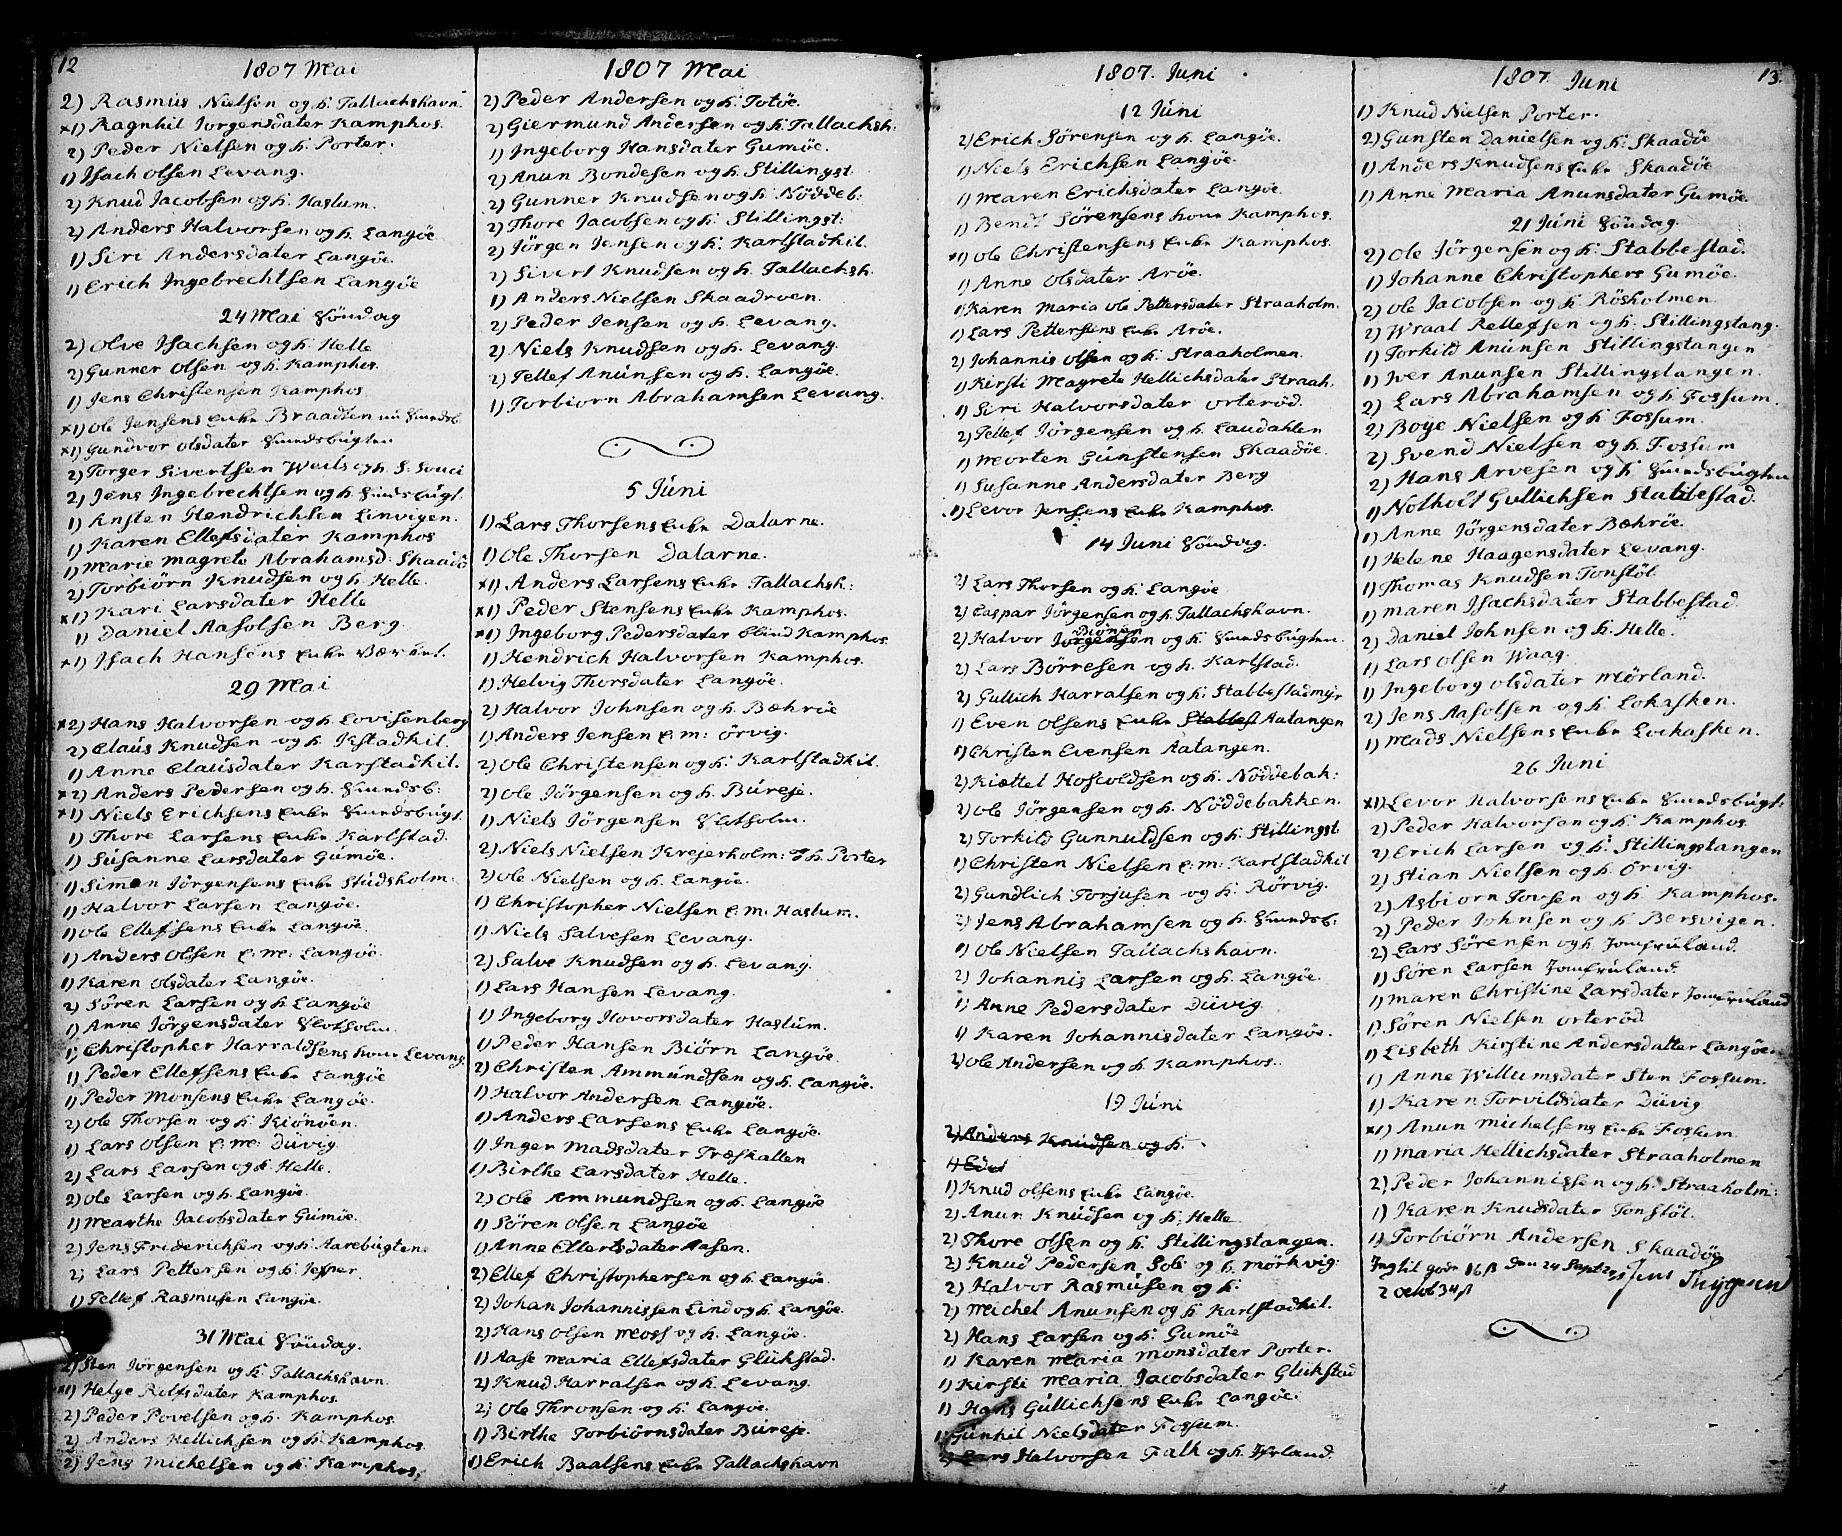 12
1807 Mai
2) Rasmus Nielsen og h. Tallachshavn.
×1) Ragnhil Jorgensdater Kamphos.
2) Peder Nielsen og h: Porter.
1) Isach Olsen Levang.
2) Knud Jacobsen og h: Haslum.
2) Anders Halvorsen og h. Langöe
1) Siri Andersdater Langöe.
1) Erich Ingebrechtsen Langöe
24 Mai Söndag
2) Olve Isachsen og h: Helle
2) Gunner Olsen og h: Kamphos.
1) Jens Christensen Kamphos
×1) Ole Jensens Enke Braadten nu Smedsb
×1) Gundvor Olsdater Smedsbugten
2) Torger Sivertsen Weils og h. S: Souci
2) Jens Ingebrechtsen og h: Smedsbugt.
1) Ansten Hendrichsen Linvigen.
1) Karen Ellefsdater Kamphos
1) Marie Magrete Abrahamsd: Skaadö
2) Torbiörn Knudsen og h: Helle.
×1) Kari Larsdater Helle
1) Daniel Aasolsen Berg.
×1) Isach Hansens Enke Værket.
29 Mai
×2) Hans Halvorsen og h: Lovisenberg
2) Claus Knudsen og h: Kstadkil.
1) Anne Clausdater Karstadkil.
×2) Anders Pedersen og h. Smedsb:
×1) Niels Erichsens Enke Smedsbugt.
1) Thore Larsens Enke Karlstad.
1) Susanne Larsdater Gumöe.
1) Simon Jörgensens Enke Studsholm:
1) Halvor Larsen Langöe.
1) Ole Ellefsens Enke Langöe.
1) Anders Olsen E: m: Langöe.
1) Karen Olsdater Langöe.
2) Sören Larsen og h Langöe
1) Anne Jörgensdater Slotholm.
1) Christopher Harraldsens kone Levang
1) Peder Ellefsens Enke Langöe
1) Peder Monsens Enke Langöe.
2) Ole Thorsen og h: Kiönöen.
1) Lars Olsen E: m: Düvig
2) Lars Larsen og h: Helle.
2) Ole Larsen og h. Langöe.
1) Marthe Jacobsdater Gumöe.
2) Jens Friderichsen og h: Aarebugten.
2) Lars Pettersen og h: Jesper.
1) Tellef Rasmusen Langöe.
31 Mai Söndag.
2) Sten Jörgensen og h: Tallachshavn.
×1) Helge Rolfsdater Kamphos.
2) Peder Povelsen og h. Kamphos.
2) Anders Hellichsen og h: Kamphos
2) Jens Michelsen og h: Kamphos.
1807 Mai
2) Peder Andersen og h: Totöe.
2) Giermund Andersen og h: Tallachsh:
1) Ingeborg Hansdater Gumöe.
2) Anun Bondesen og h: Stillingst
2) Gunner Knudsen og h: Nöddeb:
2) Thore Jacobsen og h: Stillingst:
2) Jörgen Jensen og h: Karlstadkil.
2) Sivert Knudsen og h: Tallachsh.
1) Anders Nielsen Skaadroen.
2) Peder Jensen og h: Levang.
2) Niels Knudsen og h. Levang.
2) Tellef Anunsen og h. Langöe.
1) Torbiorn Abrahamsen Levang.
5 Juni
1) Lars Thorsens Enke Dalarne.
1) Ole Thorsen Dalarne.
×1) Anders Larsens Enke Tallachsh:
×1) Peder Stensens Enke Kamphos.
×1) Ingeborg Pedersdater blind Kamphos
1) Hendrich Halvorsen Kamphos.
1) Helvig Thorsdater Langöe.
2) Halvor Johnsen og h: Bæhröe
1) Anders Jensen E: m: Örvig.
2) Ole Christensen og h: Karlstadkil.
2) Ole Jörgensen og h: Bureje.
1) Niels Jörgensen Slotholm.
2) Niels Nielsen Krejerholm: og h: Porter
2) Ole Nielsen og h. Langöe.
1) Christopher Nielsen E: m: Haslum.
1) Niels Salvesen Levang.
2) Salve Knudsen og h: Levang.
1) Lars Hansen Levang.
1) Ingeborg Hovorsdater Haslum.
1) Peder Hansen Biörn Langöe
2) Christen Ammundsen og h: Langöe.
1) Halvor Andersen Langöe.
1) Anders Larsens Enke Langöe.
1) Inger Madsdater Træskallen
1) Birthe Larsdater Helle.
2) Ole Ammundsen og h. Langöe
1) Sören Olsen Langöe
1) Anne Ellertsdater Aasen.
2) Ellef Christophersen og h. Langöe.
2) Johan Johannissen Lind og h: Langöe.
2) Hans Olsen Moss og h. Langöe.
1) Aase Maria Ellefsdater Glükstad.
2) Knud Harralsen og h. Levang.
2) Ole Thronsen og h: Langöe.
1) Birthe Torbiörnsdater Bureje.
1) Erich Baalsens Enke Tallachshavn
1807. Juni
12 Juni
2) Erich Sörensen og h. Langöe.
1) Niels Erichsen Langöe.
1) Maren Erichsdater Langöe
1) Bendt Sörensens kone Kamphos.
×1) Ole Christensens Enke Kamphos.
1) Anne Olsdater Aröe.
1) Karen Maria Ole Pettersdater Straaholm.
1) Lars Pettersens Enke Aröe.
2) Johannis Olsen og h: Straaholmen.
1) Kirsti Magrete Hellichsdater Straah.
1) Siri Halvorsdater Orteröd.
2) Tellef Jörgensen og h: Laudahlen
1) Morten Gunstensen Skaadöe.
1) Susanne Andersdater Berg
1) Levor Jensens Enke Kamphos.
14 Juni Söndag.
2) Lars Thorsen og h: Langöe
2) Caspar Jörgensen og h: Tallachshavn.
2) Halvor Jörgensen og h: Smedsbugten.
2) Lars Börresen og h: Karlstad.
2) Gullich Harralsen og h: Stabbestadmyr
1) Even Olsens Enke Stabbest Aatangen
1) Christen Evensen Aatangen.
2) Kiættel Hoscoldsen og h: Nöddebak:
2) Ole Jörgensen og h: Nöddebakken.
2) Torkild Gunnuldsen og h: Stillingst
1) Christen Nielsen E: m: Karlstadkil
2) Gundlich Torjusen og h: Rörvig.
2) Jens Abrahamsen og h. Smedsb:
1) Ole Nielsen Tallachshavn.
2) Johannis Larsen og h. Langöe.
1) Anne Pedersdater Düvig
1) Karen Johannisdater Langöe.
2) Ole Andersen og h: Kamphos.
19 Juni
2) Anders Knudsen og h.
1) Edel
1) Knud Olsens Enke Langöe.
2) Anun Knudsen og h: Helle
2) Thore Olsen og h: Stillingstangen.
2) Knud Pedersen Sols og h. Mörkvig:
2) Halvor Rasmusen og h:
2) Michel Anunsen og h: Karlstadkil.
2) Hans Larsen og h: Gumöe
1) Karen Maria Monsdater Porter.
1) Kirsti Maria Jacobsdater Glükstad
1) Hans Gullichsens Enke Langöe.
1) Gunhil Nielsdater Fossum.
2) Lars Halvorsen Falk og h. Wland.
13.
1807 Juni
1) Knud Nielsen Porter.
2) Gunsten Danielsen og h: Skaadöe
1) Anders Knudsens Enke Skaadöe
1) Anne Maria Anunsdater Gumöe
21 Juni Söndag
2) Ole Jörgensen og h: Stabbestad.
1) Johanne Christophers Gumöe.
2) Ole Jacobsen og h: Rösholmen.
2) Wraal Rellefsen og h: Stillingstang.
1) Torkild Anunsen Stillingstangen
1) Iver Anunsen Stillingstangen.
2) Lars Abrahamsen og h Fossum.
2) Boye Nielsen og h: Fossum.
2) Svend Nielsen og h: Fossum
2) Hans Arvesen og h: Smedsbugten
1) Notholt Gullichsen Stabbestad.
1) Anne Jörgensdater Bæhröe.
1) Helene Haagensdater Levang.
1) Thomas Knudsen Tonstöl.
1) Maren Isachsdater Stabbestad.
2) Daniel Johnsen og h: Helle.
1) Lars Olsen Waag.
1) Ingeborg Olsdater Mörland.
2) Jens Aasolsen og h: Lokasken.
1) Mads Nielsens Enke Lockasken.
26 Juni
×1) Levor Halvorsens Enke Smedsbugt:
2) Peder Halvorsen og h: Kamphos.
2) Erich Larsen og h: Stillingstangen
2) Stian Nielsen og h: Örvig.
2) Asbiorn Tovsen og h: Kamphos.
2) Peder Johnsen og h: Bersvigen.
2) Lars Sörensen og h: Jomfruland.
1) Sören Larsen Jomfruland.
1) Maren Christine Larsdater Jomfruland
1) Sören Nielsen Orteröd
1) Lisbeth Kirstine Andersdatter Langöe.
1) Anne Willumsdater Sten Fossum.
1) Karen Torvildsdater Düvig
×1) Anun Michelsens Enke Fossum
1) Maria Hellichsdater Straaholmen
2) Peder Johannissen og h: Straaholm:
1) Karen Knudsdater Tonstöl.
1) Torbiörn Andersen Skaadöe
den 24 Sept.